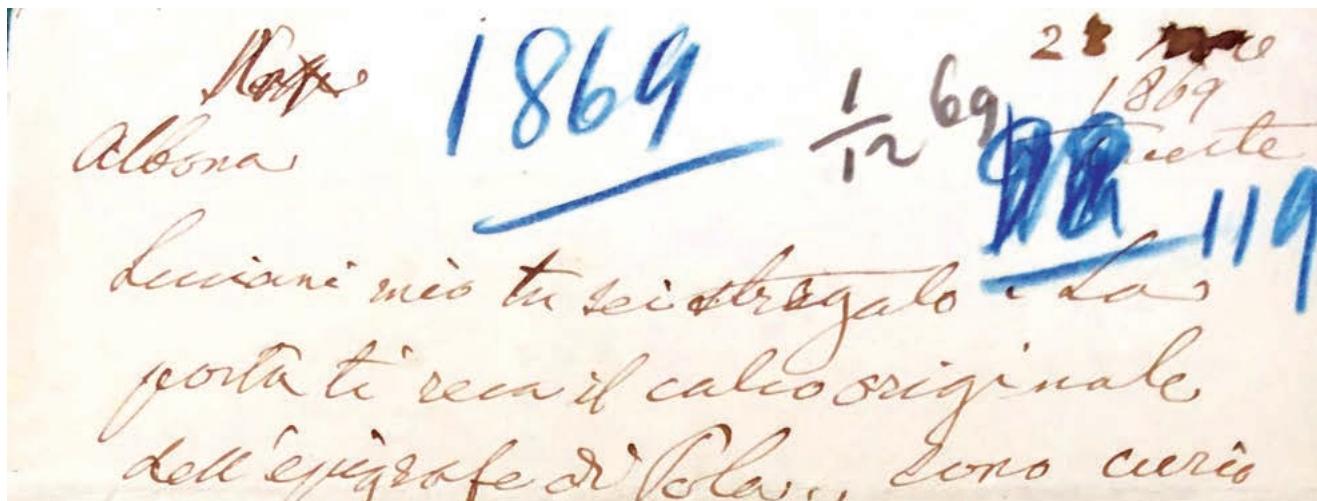 1869
1/12 69
2
1869
Albona
Trieste
119
Luciani mio tu sei stregato. La
posta ti reca il calco originale
dell'epigrafe di Pola,, sono curio